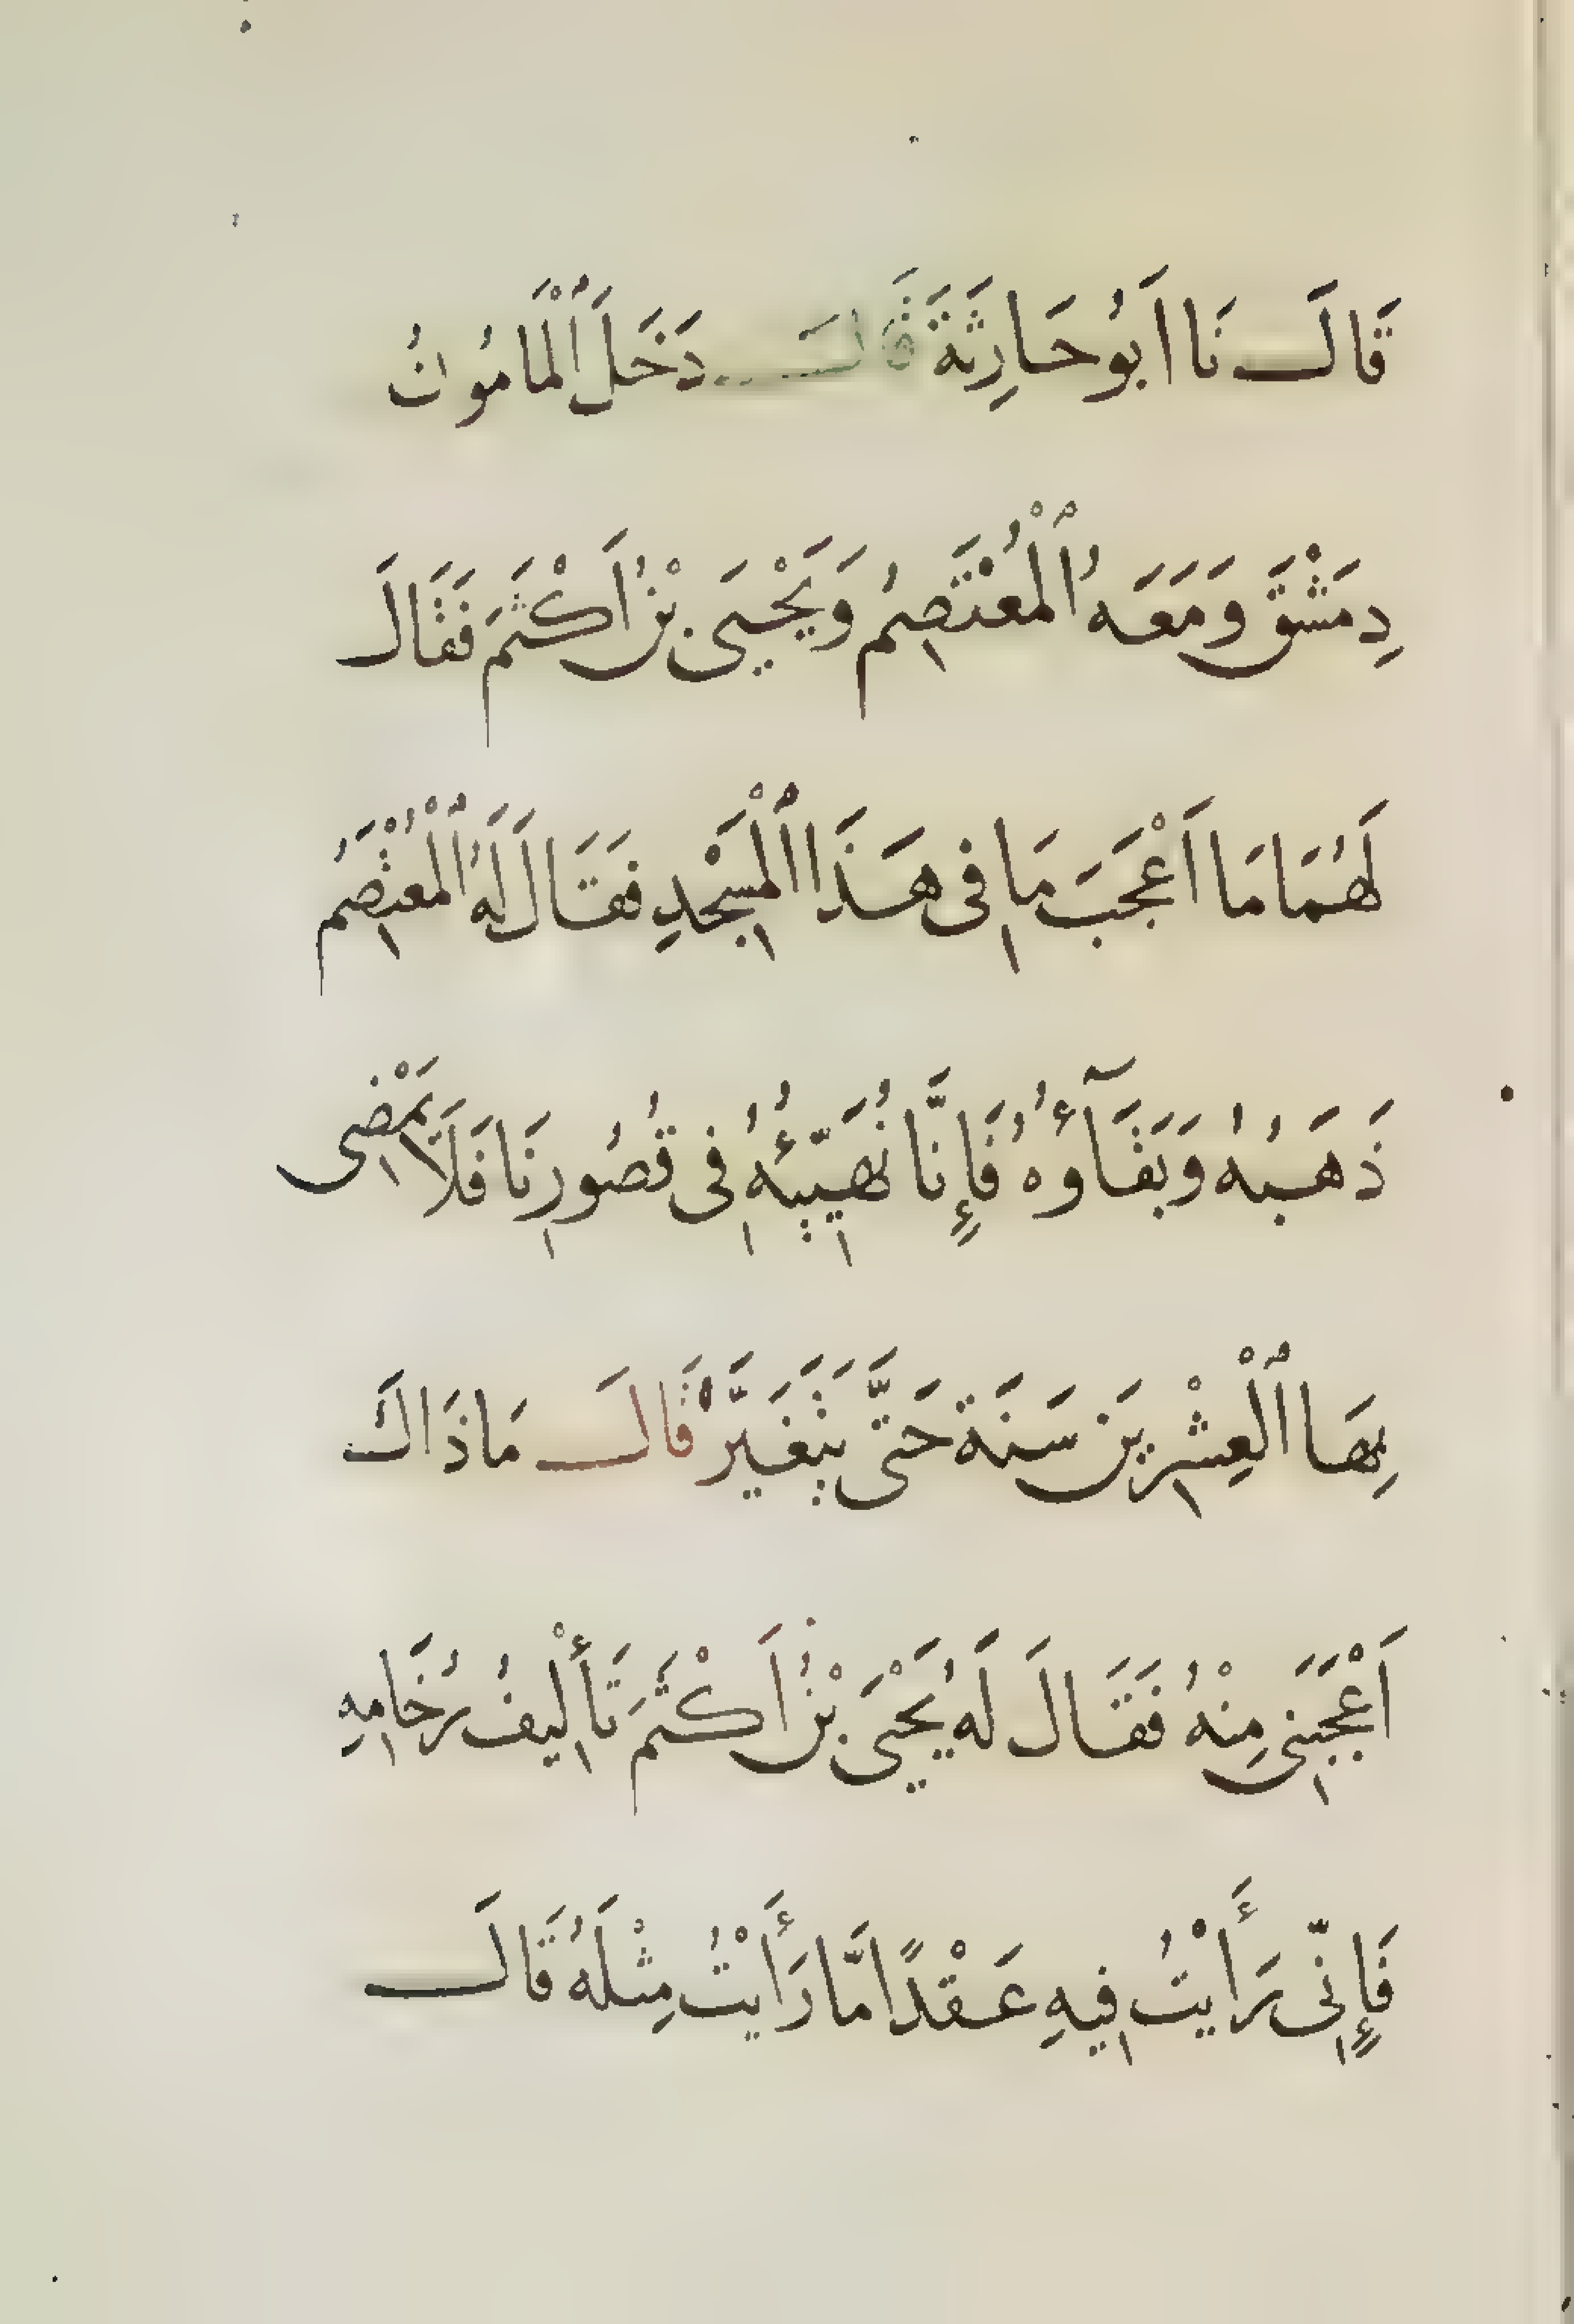 قَالَ نَا اَبُو حَارِثَةَ قَالَ دَخَلَ ٱلْمَامُونُ
دِمَشْقَ وَمَعَهُ ٱلْمُعْتَصِمُ وَيَحْيَى بْنُ اَكْثَمَ فَقَالَ
لَهُمَا مَا اَعْجَبَ مَا فِى هَذَا ٱلْمَسْجِدِ فَقَالَ لَهُ ٱلْمُعْتَصِمُ
ذَهَبُهُ وَبَقَآءُوهُ فَإِنَّا نُهَيِّئُهُ فِى قُصُورِنَا فَلَا يَمْضِى
بِهَا ٱلْعِشْرِينَ سَنَةً حَتَّى يَتَغَيَّرَ قَالَ مَا ذَاكَ
اَعْجَبَنِى مِنْهُ فَقَالَ لَهُ يَحْيَى بْنُ اَكْثَمَ تَأْلِيفُ رُخَامِهِ
فَإِنِّى رَأَيْتُ فِيهِ عَقْدًا مَّا رَأَيْتُ مِثْلَهُ قَالَ